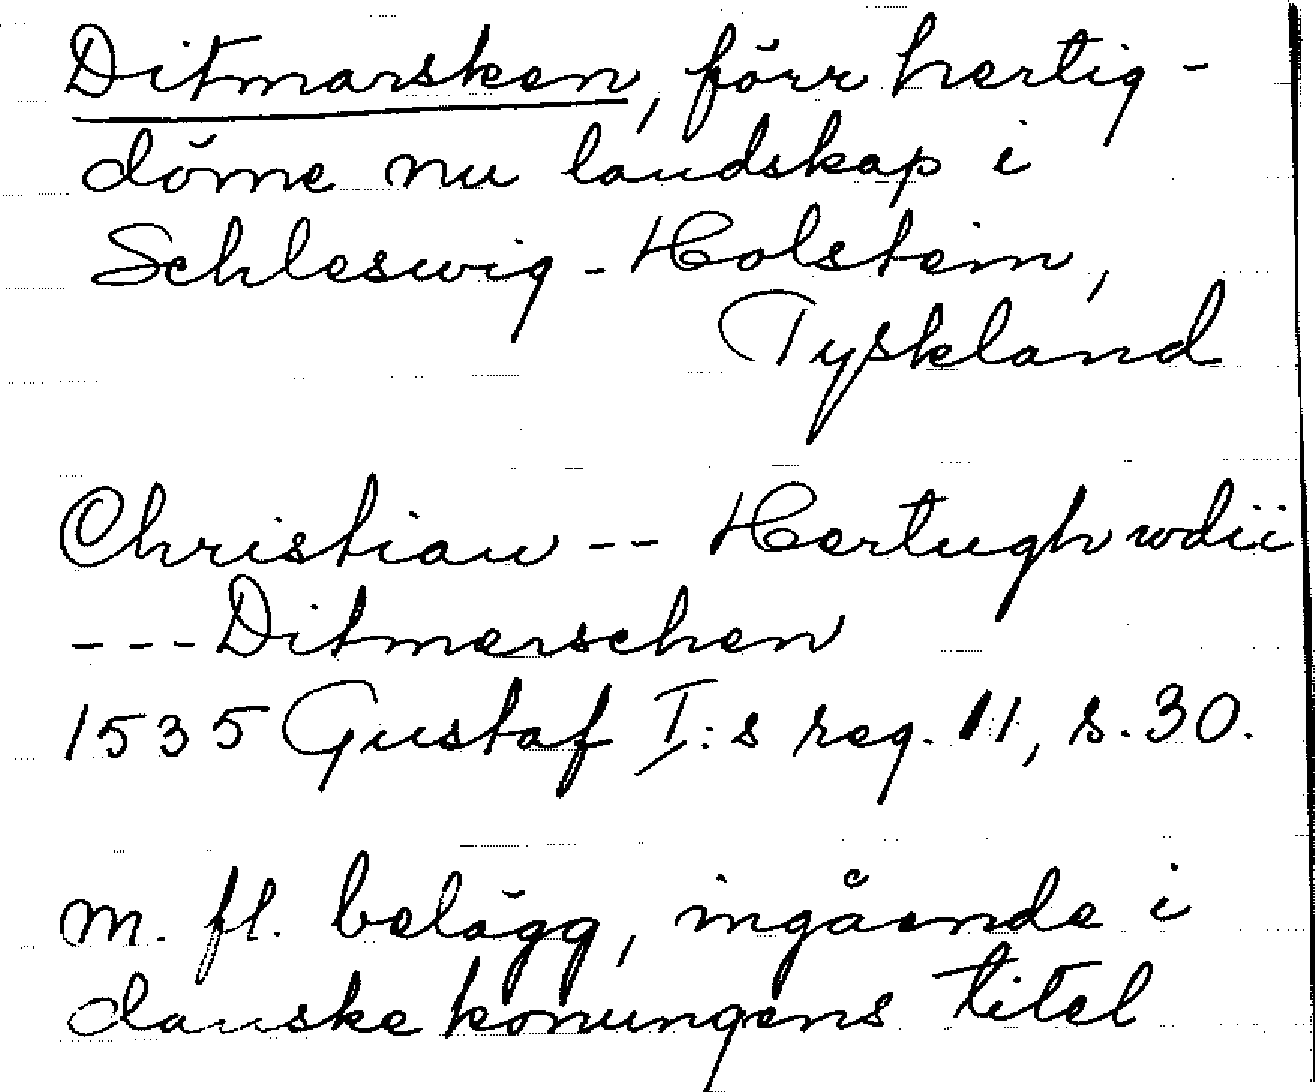 Ditmarsken, förr hertig-
döme nu landskap i
Schleswig-Holstein,
Tyskland
Christian -- Hertugh wdii
--- Ditmerschen
1535 Gustaf I:s reg. 11, s. 30.
m. fl. belägg, ingående i
danske konungens titel